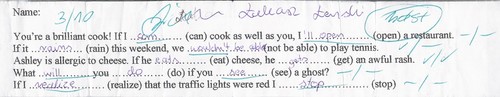 Name: 3/10
You're a brilliant cook! If I ...... (can) cook as well as you, I 'll open (open) a restaurant.
If it rains (rain) this weekend, we wouldn't be able (not be able) to play tennis.
Ashley is allergic to cheese. If he eats (eat) cheese, he gets (get) an awful rash.
What will you do (do) if you see (see) a ghost?
If I realize (realize) that the traffic lights were red I stop (stop)